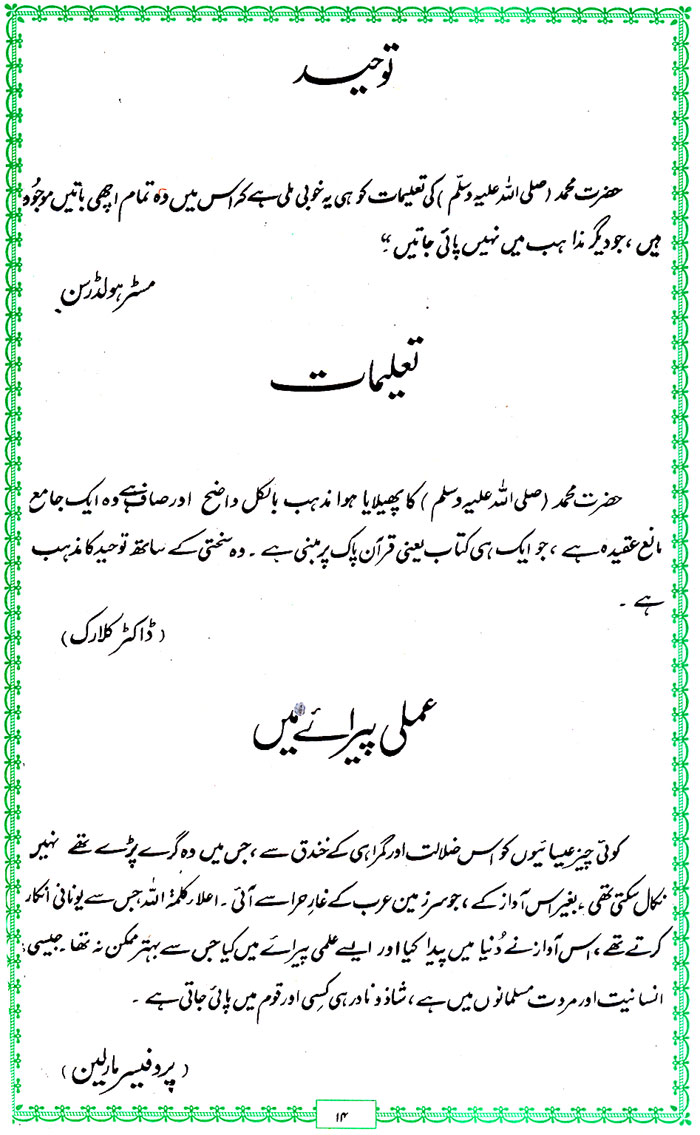 توحید
حضرت محمد (صلی اللہ علیہ وسلّم) کی تعلیمات کو ہی یہ خوبی ملی ہے کہ اس میں وہ تمام اچھی باتیں موجُود
ہیں ، جو دیگر مذاہب میں نہیں پائی جاتیں ۔"
مسٹر ہولڈرسن
تعلیمات
حضرت محمد (صلی اللہ علیہ وسلم) کا پھیلایا ہوا مذہب بالکل واضح اور صاف ہے وہ ایک جامع
مانع عقیدہ ہے ، جو ایک ہی کتاب یعنی قرآن پاک پر مبنی ہے ۔ وہ سختی کے ساتھ توحید کا مذہب
ہے ۔
(ڈاکٹر کلارک)
عملی پیرائے میں
کوئی چیز عیسائیوں کو اس ضلالت اور گمراہی کے خندق سے ، جس میں وہ گرے پڑے تھے نہیں
نکال سکتی تھی ، بغیر اس آواز کے ، جو سرزمین عرب کے غارِ حرا سے آئی ۔ اعلاء کلمۃ اللہ جس سے یونانی انکار
کرتے تھے ، اس آواز نے دُنیا میں پیدا کیا اور ایسے علمی پیرائے میں کیا جس سے بہتر ممکن نہ تھا ۔ جیسی
انسانیت اور مروت مسلمانوں میں ہے ، شاذ و نادر ہی کِسی اور قوم میں پائی جاتی ہے ۔
(پروفیسر مارلین)
۱۴